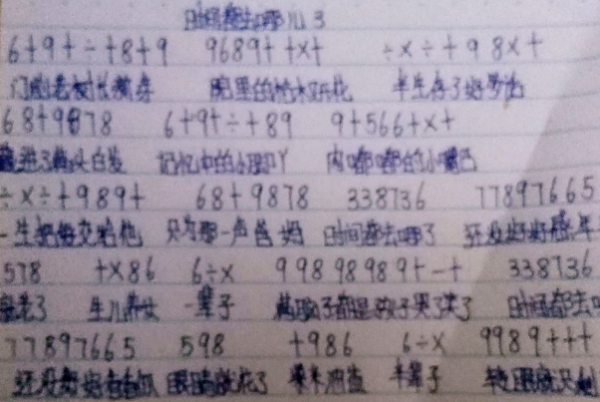 时间都去哪儿了
6+9+÷+8+9 9689++x+ ÷x÷+98x+
门前老树长新芽 院里的枯木又开花 半生存了好多话
68+9878 6+9+÷+89 9+566+x+
进了满头白发 记忆中的小脚丫 肉嘟嘟的小嘴巴
÷x÷+989+ 68+9878 338736 77897665
一生把爱交给他 只为那一声爸妈 时间都去哪了 还没好好感
578 +x86 6÷x 99898989+-+ 338736
老了 生儿养女 一辈子 满脑子都是孩子哭了笑了 时间都去
77897665 598 +986 6÷x 9989+++
还没好好看看 眼睛就花了 柴米油盐 半辈子 转眼就只